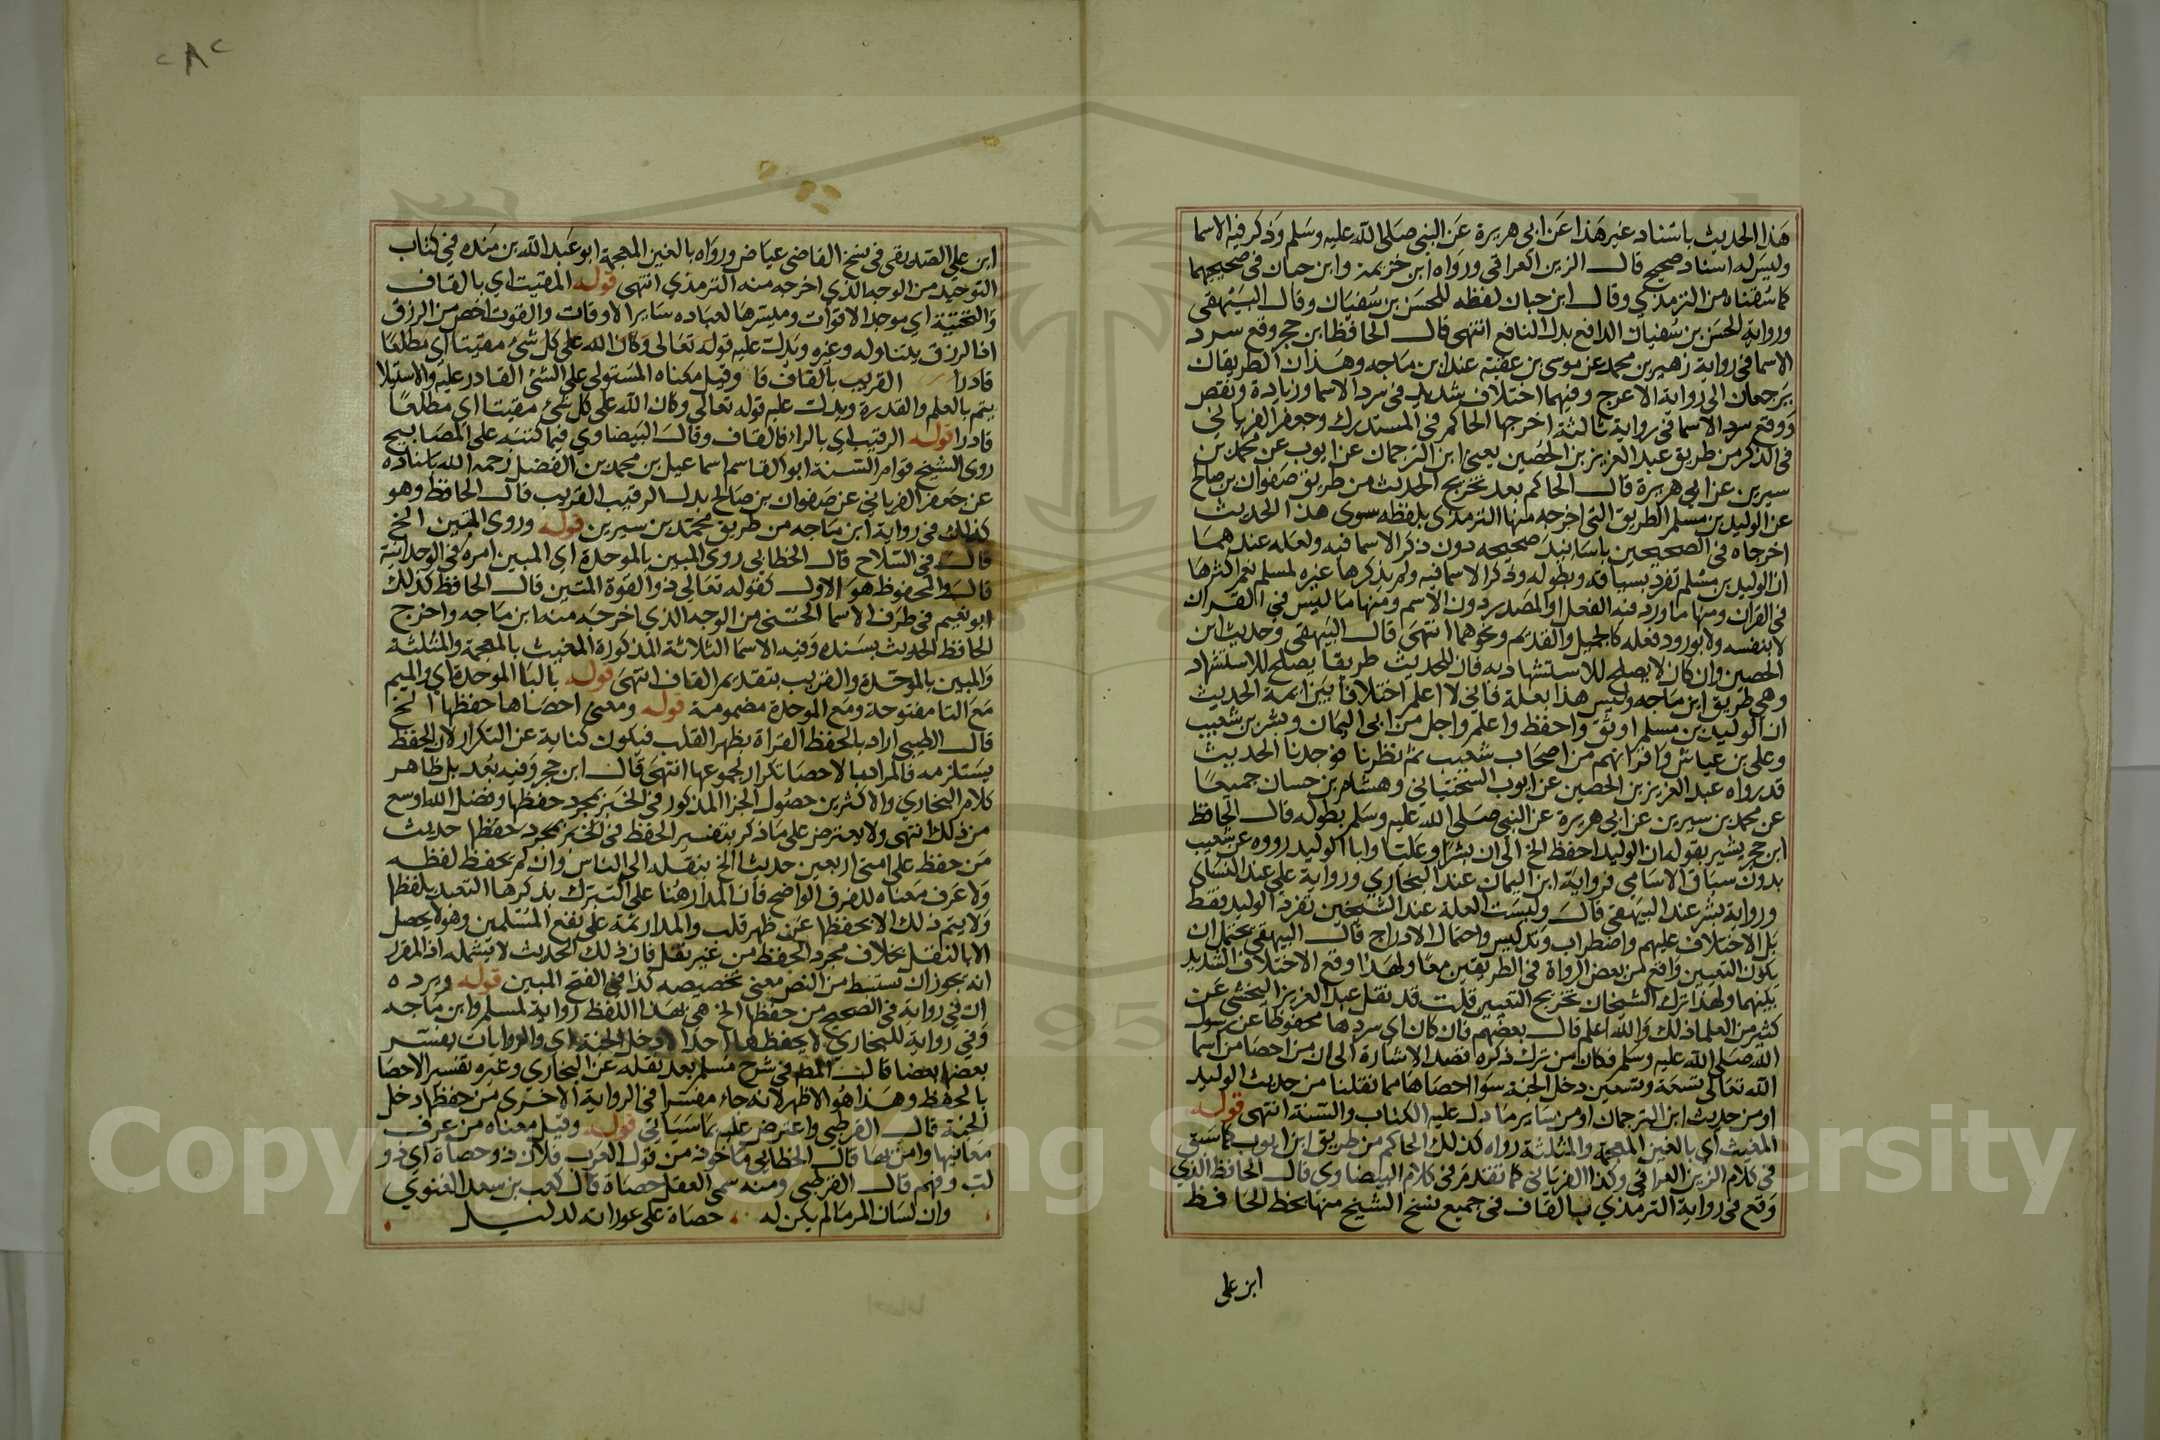 هذا الحديث باسناد غير هذا عن ابي هريرة عن النبي صلى الله عليه وسلم وذكر فيه الاسما
وليس له اسناد صحيح قال الزين العراقي ورواه ابن خزيمة وابن حبان في صحيحيهما
كما سقناه من الترمذي وقال ابن حبان لفظه للحسن بن سفيان وقال البيهقي
ورواية الحسن بن سفيان الدافع بدل النافع انتهى قال الحافظ ابن حجر وقع سرد
الاسما في رواية زهير بن محمد عن موسى بن عقبة عند ابن ماجه وهذان الطريقان
يرجعان الى رواية الاعرج وفيهما اختلاف شديد في سرد الاسما وزيادة ونقص
ووقع سرد الاسما في رواية ثالثة اخرجها الحاكم في المستدرك وجعفر الفريابي
في الذكر من طريق عبد العزيز بن الحصين يعني ابن الترجمان عن ايوب عن محمد بن
سيرين عن ابي هريرة قال الحاكم بعد تخريج الحديث من طريق صفوان بن صالح
عن الوليد بن مسلم الطريق التي اخرجه منها الترمذي بلفظه سوى هذا الحديث
اخرجاه في الصحيحين باسانيد صحيحه دون ذكر الاسما فيه ولعله عندهما
ان الوليد بن مسلم تفرد بسياقه وبطوله وذكر الاسما فيه ولم يذكرها غيره لمسلم نعم اكثرها
في القران ومنها ما ورد فيه الفعل او المصدر دون الاسم ومنها ما ليس في القران
لا بنفسه ولا بورود فعله كالجميل والقديم ونحوهما انتهى قال البيهقي وحديث ابن
الحصين وان كان لا يصلح للاستشهاد به فان للحديث طريقا يصلح للاستشهاد
وهي طريق ابن ماجه وليس هذا بعلة فاني لا اعلم اختلافا بين ائمة الحديث
ان الوليد بن مسلم اوثق واحفظ واعلم واجل من ابي اليمان وبشر بن شعيب
وعلي بن عياش واقرانهم من اصحاب شعيب ثم نظرنا فوجدنا الحديث
قد رواه عبد العزيز بن الحصين عن ايوب السختياني وهشام بن حسان جميعا
عن محمد بن سيرين عن ابي هريرة عن النبي صلى الله عليه وسلم بطوله قال الحافظ
ابن حجر يشير بقوله ان الوليد احفظ الخ الى ان بشرا وعليا وابا الوليد رووه عن شعيب
بدون سياق الاسامي فرواية ابن اليمان عند البخاري ورواية علي عند النسائي
ورواية بشر عند البيهقي قال وليست العلة عند الشيخين تفرد الوليد فقط
بل الاختلاف عليهم واضطراب وتدليس واحتمال الادراج قال البيهقي يحتمل ان
يكون التعيين واقع من بعض الرواة في الطريقين معا ولهذا وقع الاختلاف الشديد
بينهما ولهذا ترك الشيخان تخريج التعيين قلت قد نقل عبد العزيز النخشبي عن
كثير من العلما ذلك والله اعلم قال بعضهم فان كان اي سردها محفوظا عن رسول
الله صلى الله عليه وسلم فكان من ترك ذكره قصد الاشارة الى ان من احصا من اسما
الله تعالى تسعة وتسعين دخل الجنة سوا احصاها مما نقلنا من حديث الوليد
او من حديث ابن الترجمان او من ساير ما دل عليه الكتاب والسنة انتهى قوله
المغيث اي بالغين المعجمة والمثلثة رواه كذلك الحاكم من طريق ابن ايوب كما سبق
في كلام الزين العراقي وكذا الفريابي كما تقدم في كلام البيضاوي قال الحافظ الذي
وقع في رواية الترمذي بالقاف في جميع نسخ الشيخ منها بخط الحافظ
ابن علي
٢٨٢
ابن علي الصدفي في نسخ القاضي عياض ورواه بالغين المعجمة ابو عبد الله بن منده في كتاب
التوحيد من الوجه الذي اخرجه منه الترمذي انتهى قوله المقيت اي بالقاف
والتحتية اي موجد الاقوات وميسرها لعباده ساير الاوقات والقوت اخص من الرزق
اذ الرزق يتناوله وغيره ويدل عليه قوله تعالى وكان الله على كل شئ مقيتا اي مطلعا
قادرا القريب بالقاف فا وقيل معناه المستولي على الشئ القادر عليه والاستيلا
يتم بالعلم والقدرة ويدل عليه قوله تعالى وكان الله على كل شئ مقيتا اي مطلعا
قادرا قوله الرقيب اي بالراء فالقاف وقال البيضاوي فيما كتبه على المصابيح
روى الشيخ قوام السنة ابو القاسم اسماعيل بن محمد بن الفضل رحمه الله باسناده
عن جعفر الفريابي عن صفوان بن صالح بدل الرقيب القريب قال الحافظ وهو
كذلك في رواية ابن ماجه من طريق محمد بن سيرين قوله وروي المتين الخ
قال في السلاح قال الخطابي روي المبين بالموحدة اي المبين امره في الوحدانية
قال والمحفوظ هو الاول كقوله تعالى ذو القوة المتين قال الحافظ كذلك
ابو نعيم في طرف الاسما الحسنى من الوجه الذي اخرجه منه ابن ماجه واخرج
الحافظ الحديث بسنده وفيه الاسما الثلاثة المذكورة المغيث بالمعجمة والمثلثة
والمبين بالموحدة والقريب بتقديم القاف انتهى قوله بالبا الموحدة اي والميم
مع التا مفتوحة ومع الموحدة مضمومة قوله ومعنى احصاها حفظها الخ
قال الطيبي اراد بالحفظ القراة بظهر القلب فيكون كناية عن التكرار لان الحفظ
يستلزمه فالمراد بالاحصا تكرار مجموعها انتهى قال ابن حجر وفيه بعد بل ظاهر
كلام البخاري والاكثرين حصول الجزا المذكور في الخبر بمجرد حفظها وفضل الله اوسع
من ذلك انتهى ولا يعترض على ما ذكر بتفسير الحفظ في الخبر بمجرد حفظها حديث
من حفظ على امتي اربعين حديثا الخ بنقله الى الناس وان لم يحفظ لفظه
ولا عرف معناه للفرق الواضح فان المدار هنا على التبرك بذكرها التعبد بلفظها
ولا يتم ذلك الا بحفظها عن ظهر قلب والمدار ثمة على نفع المسلمين وهو لا يحصل
الا بالنقل بخلاف مجرد الحفظ من غير نقل فان ذلك الحديث لا يشمله اذ المقرر
انه يجوز ان يستنبط من النص معنى تخصيصه كذا في الفتح المبين قوله ويرده
ان في رواية في الصحيح من حفظها الخ هي بهذا اللفظ رواية لمسلم وابن ماجه
وفي رواية للبخاري لا يحفظها احد الا دخل الجنة اي والروايات يفسر
بعضها بعضا قال المط في شرح مسلم بعد نقله عن البخاري وغيره تفسير الاحصا
بالحفظ وهذا هو الاظهر لانه جاء مفسرا في الرواية الاخرى من حفظها دخل
الجنة قال القرطبي واعترض عليه بما سياتي قوله وقيل معناه من عرف
معانيها وامن بها قال الخطابي ماخوذ من قول العرب فلان ذو حصاة اي ذو
لب وفهم قال القرطبي ومنه سمي العقل حصاة قال كعب بن سعد الغنوي
وان لسان المرء ما لم يكن له حصاة على عوراته لدليل